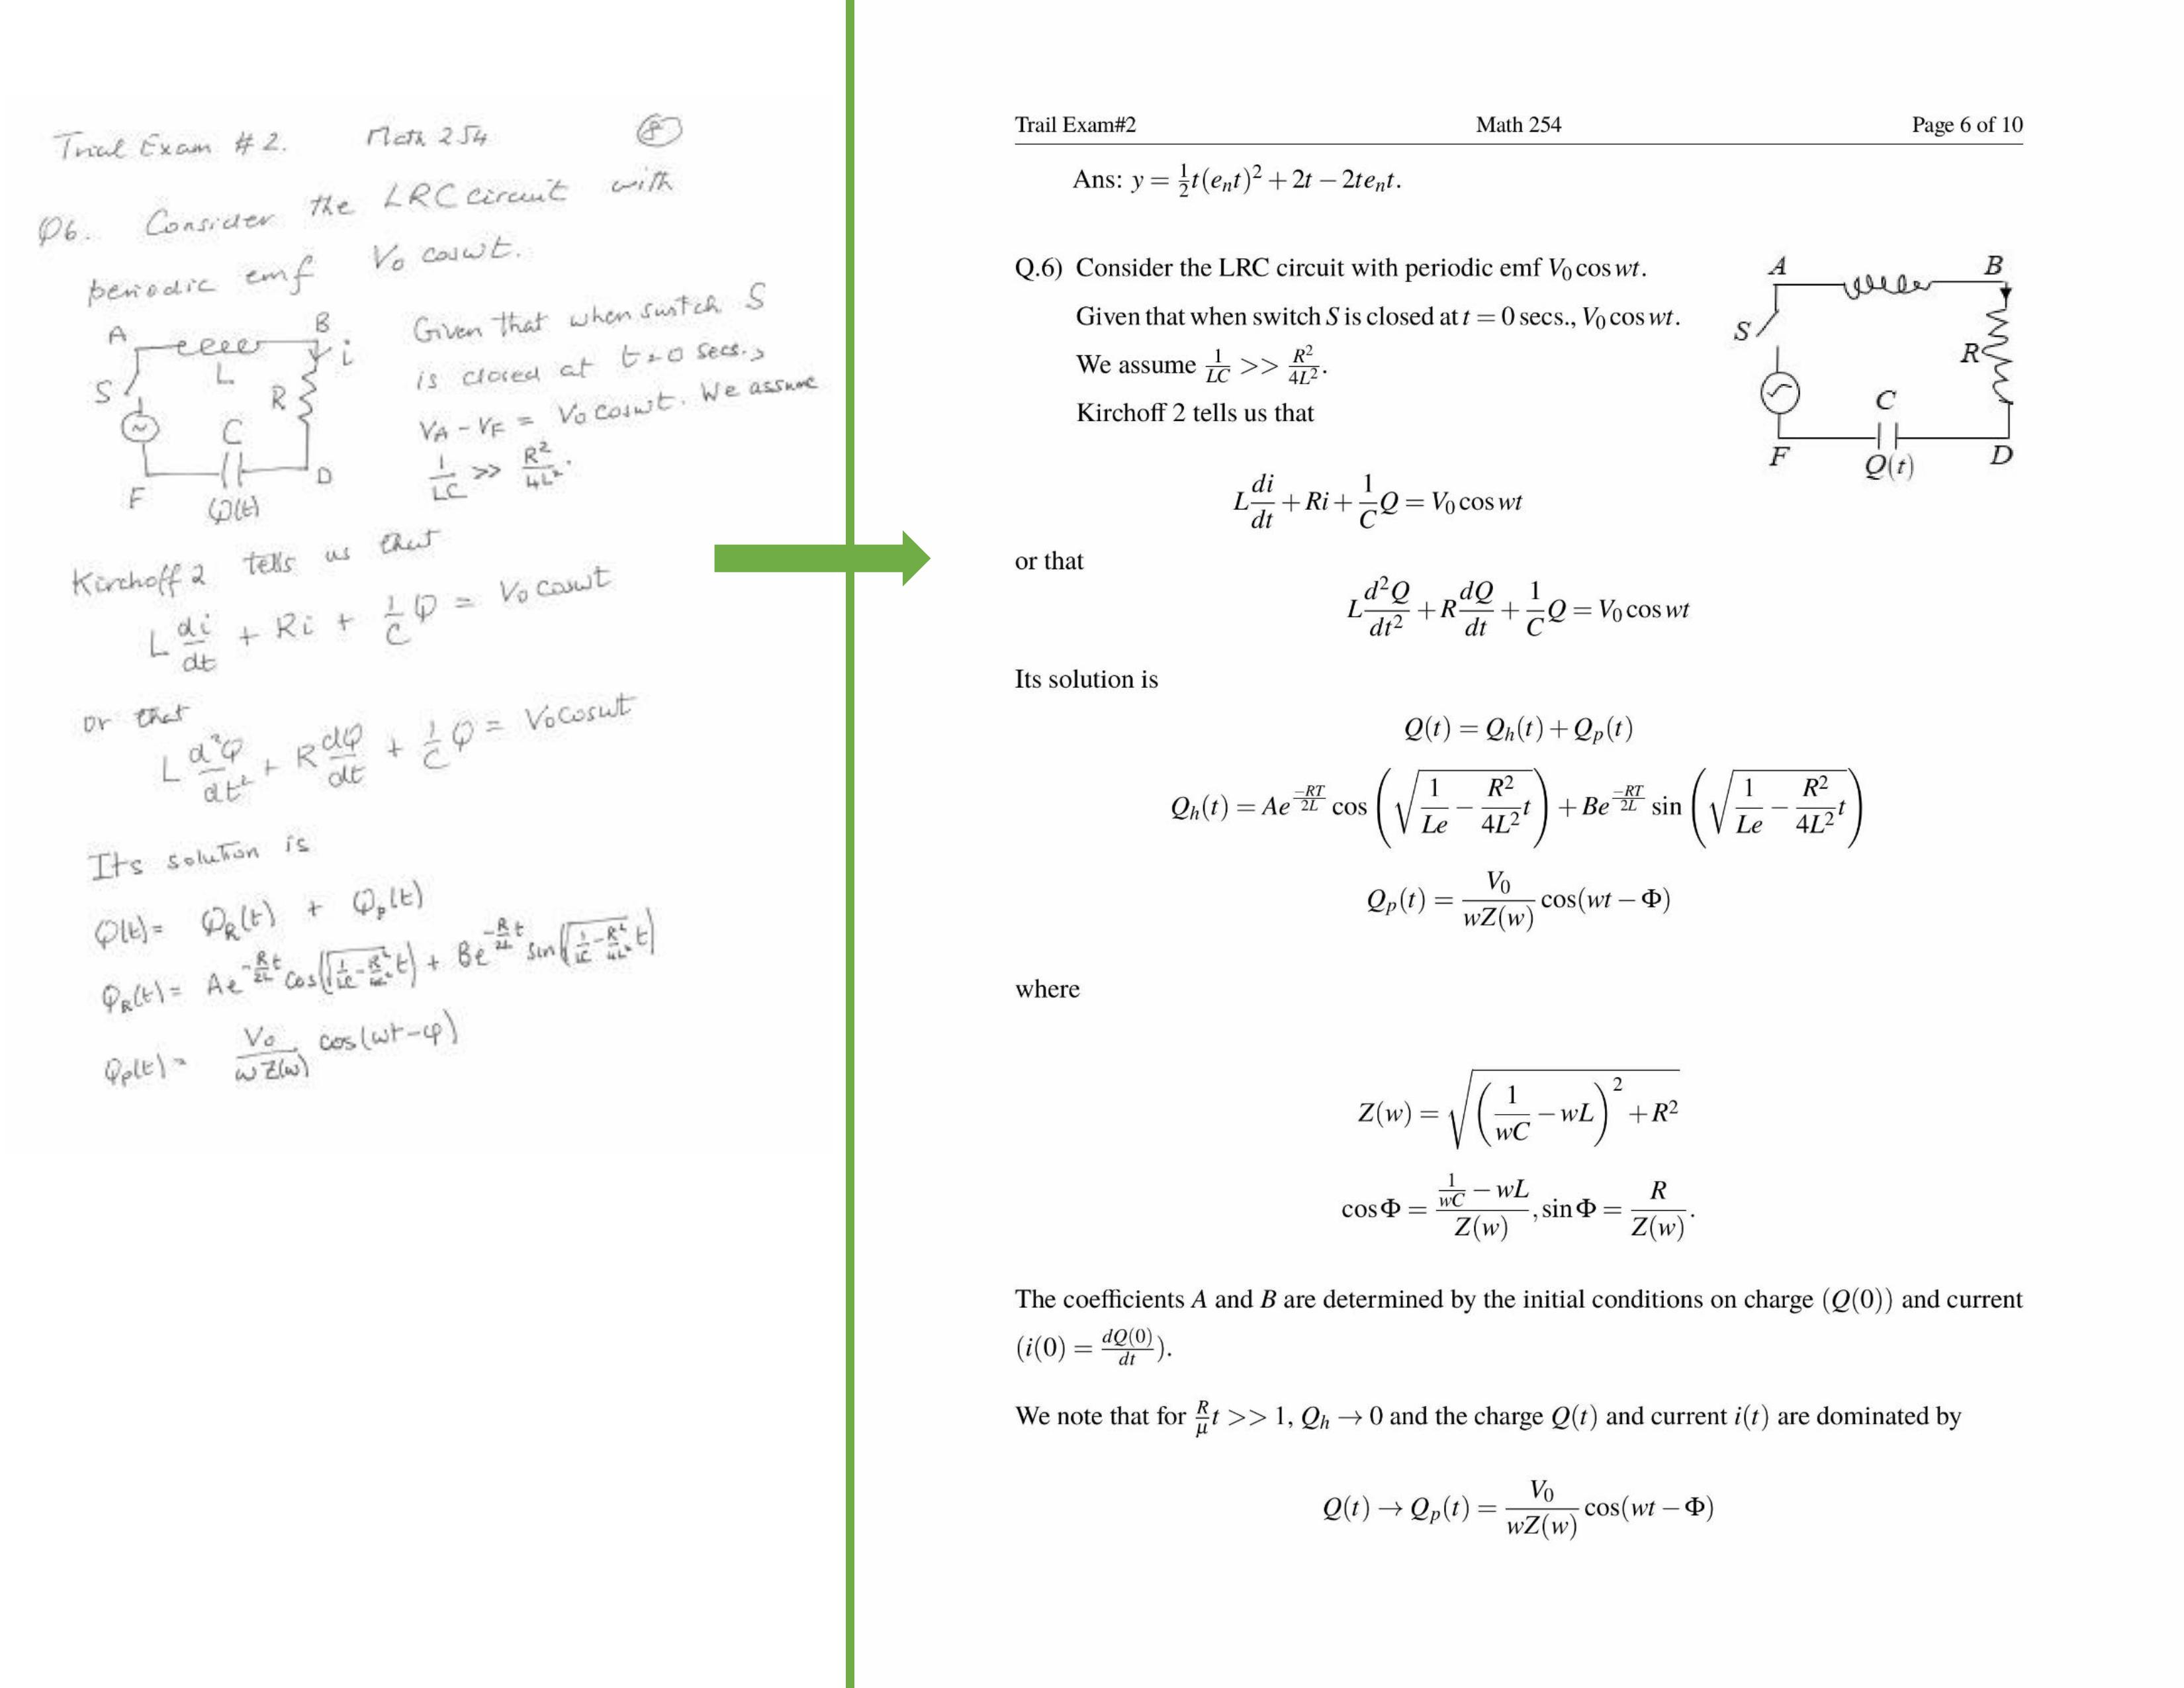 Trial Exam # 2. Math 254 8
Q6. Consider the LRC circuit with
periodic emf V₀ cos wt.
A B i
L
S R
C
F D
Q(t)
Given that when switch S
is closed at t=0 secs.,
V_A - V_F = V₀ cos wt. We assume
1/LC >> R²/4L².
Kirchoff 2 tells us that
L di/dt + Ri + 1/C Q = V₀ cos wt
or that
L d²Q/dt² + R dQ/dt + 1/C Q = V₀ cos wt
Its solution is
Q(t) = Q_R(t) + Q_p(t)
Q_R(t) = Ae^(-R/2L t) cos(√(1/LC - R²/4L²) t) + Be^(-R/2L t) sin(√(1/LC - R²/4L²) t)
Q_p(t) = V₀/wZ(w) cos(wt-φ)
Trail Exam#2 Math 254 Page 6 of 10
Ans: y = ½t(eₙt)² + 2t − 2teₙt.
Q.6) Consider the LRC circuit with periodic emf V₀ cos wt.
Given that when switch S is closed at t = 0 secs., V₀ cos wt.
We assume 1/LC >> R²/4L².
Kirchoff 2 tells us that
A B
S
R
C
F Q(t) D
L di/dt + Ri + 1/C Q = V₀ cos wt
or that
L d²Q/dt² + R dQ/dt + 1/C Q = V₀ cos wt
Its solution is
Q(t) = Q_h(t) + Q_p(t)
Q_h(t) = Ae^(-RT/2L) cos(√(1/Le − R²/4L² t)) + Be^(-RT/2L) sin(√(1/Le − R²/4L² t))
Q_p(t) = V₀/wZ(w) cos(wt − Φ)
where
Z(w) = √((1/wC − wL)² + R²)
cos Φ = (1/wC − wL)/Z(w), sin Φ = R/Z(w).
The coefficients A and B are determined by the initial conditions on charge (Q(0)) and current
(i(0) = dQ(0)/dt).
We note that for R/μ t >> 1, Q_h → 0 and the charge Q(t) and current i(t) are dominated by
Q(t) → Q_p(t) = V₀/wZ(w) cos(wt − Φ)